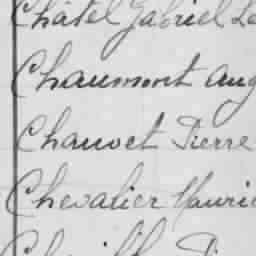 Châtel Gabriel Le
Chaumont Aug
Chauvet Pierre
Chevalier Mauri